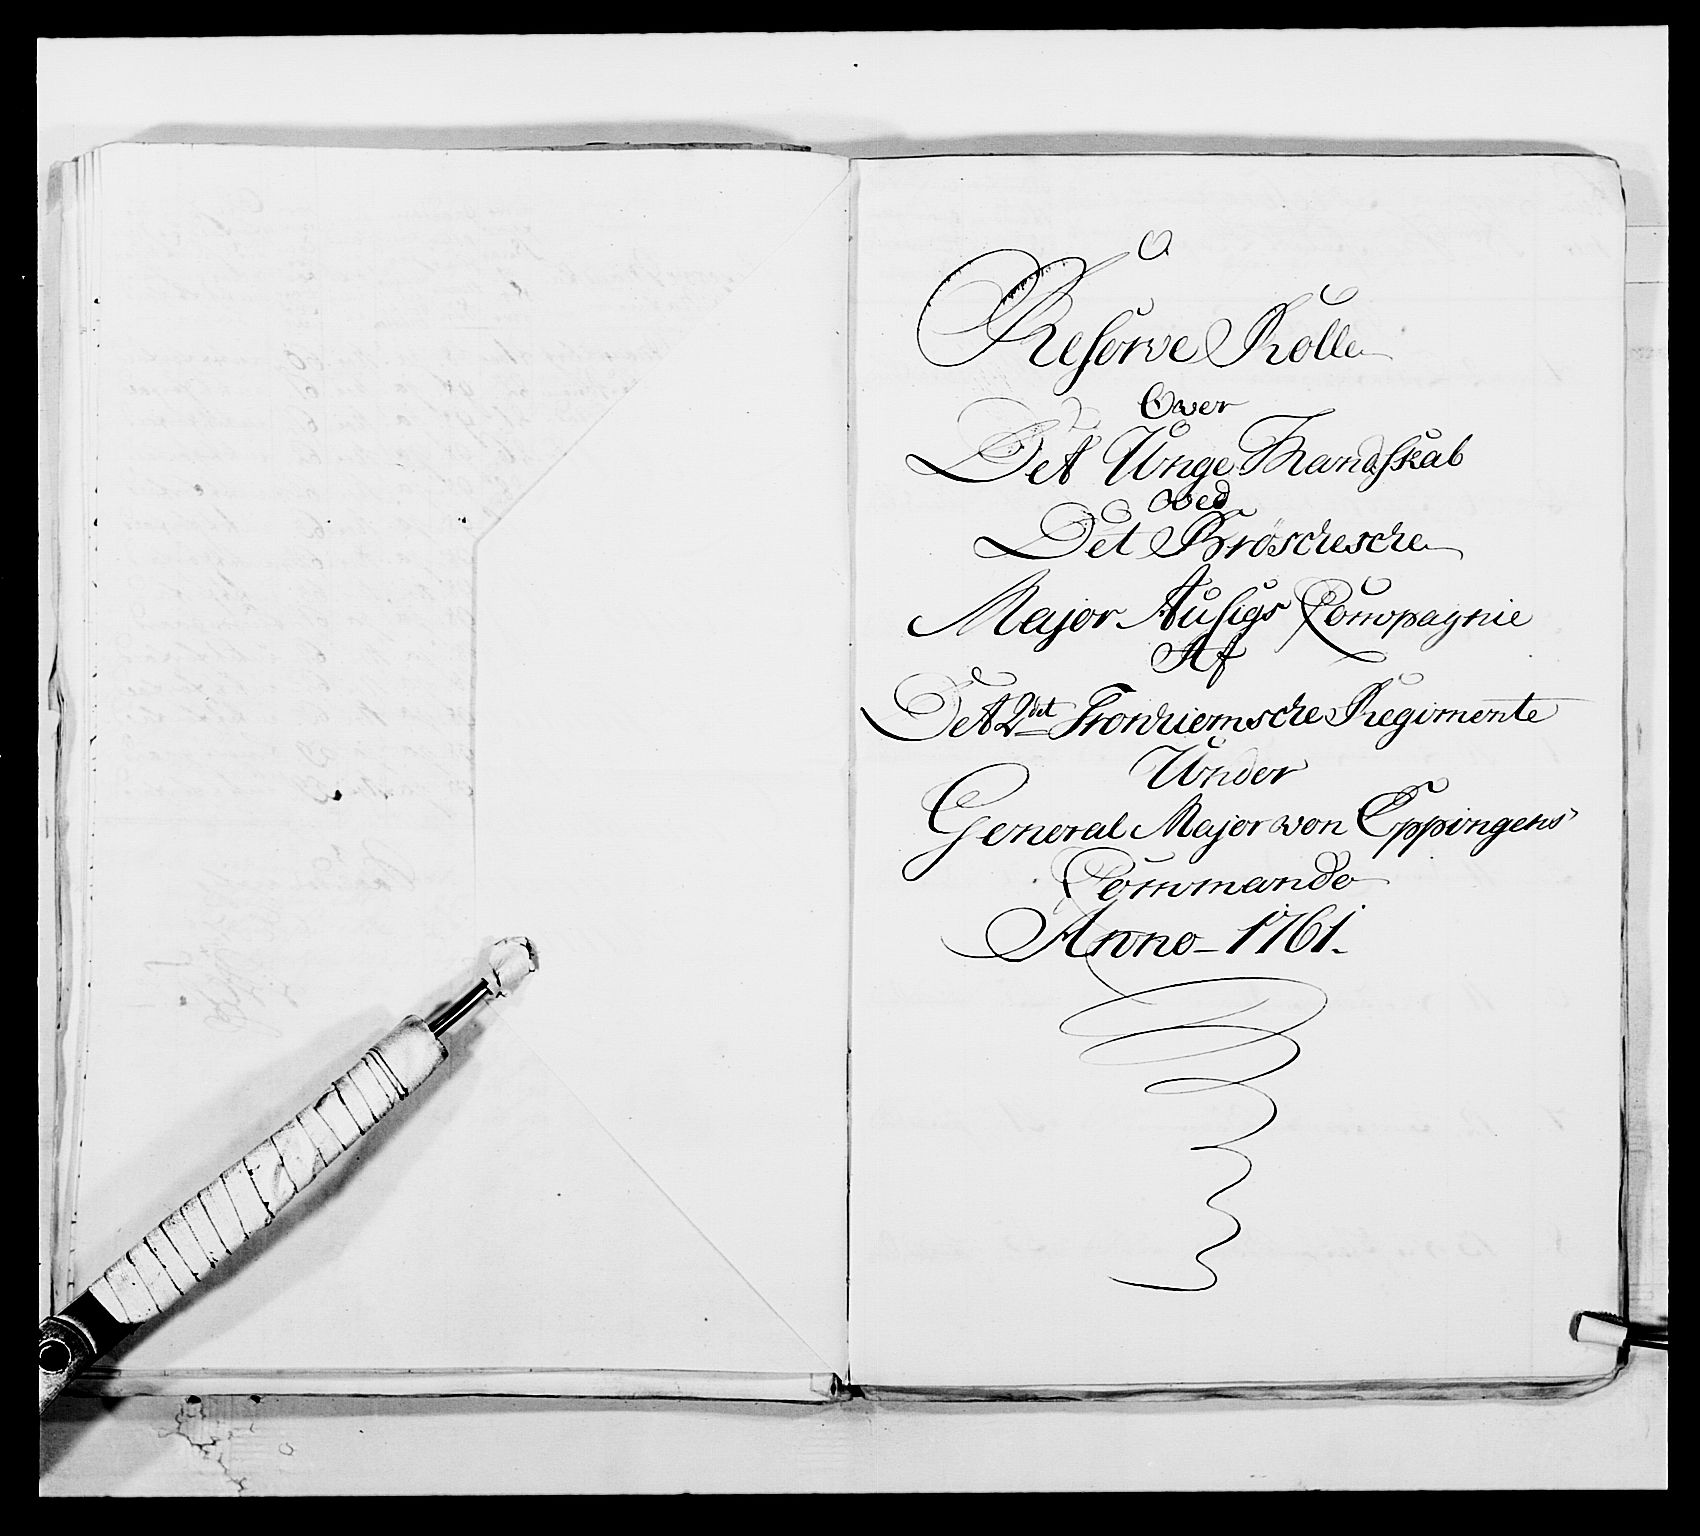 Reserve Rolle
Over
Det Unge Mandskab
ved
Det Bröschesche
Major Ausigs Compagnie
Af
Det 2det Tronhiemsche Regimente
Under
General Major von Eppingens
Commando
Anno 1761.